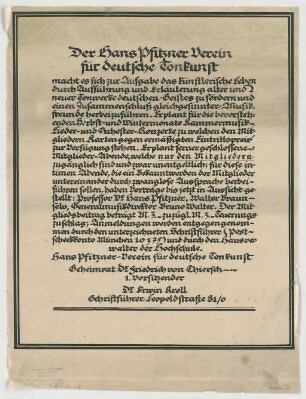 Der Hans Pfitzner Verein
für deutsche Tonkunst
macht es sich zur Aufgabe das künstlerische Leben
durch Aufführung und Erläuterung alter und
neuer Tonwerke deutschen Geistes zu fördern und
einen Zusammenschluß gleichgesinnter Musik-
freunde herbeizuführen. Er plant für die bevorsteh-
enden Herbst- und Wintermonate Kammermusik-
Lieder- und Orchester-Konzerte zu welchen den Mit-
gliedern Karten gegen ermäßigten Eintrittspreis
zur Verfügung stehen. Er plant ferner geschlossene
Mitglieder-Abende, welche nur den Mitgliedern
zugänglich sind und zwar unentgeltlich; für diese in-
timen Abende, die ein Bekanntwerden der Mitglieder
untereinander durch zwanglose Aussprache herbei-
führen sollen, haben Vorträge bis jetzt in Aussicht ge-
stellt: Professor Dr. Hans Pfitzner, Walter Braun-
fels, Generalmusikdirektor Bruno Walter. Der Mit-
gliedsbeitrag beträgt M. 3.- zuzügl. M. 2.- Teuerungs-
zuschlag; Anmeldungen werden entgegengenom-
men durch den unterzeichneten Schriftführer
und durch den Hausver-
walter der Hochschule.
Hans Pfitzner-Verein für deutsche Tonkunst
Geheimrat Dr. Friedrich von Thiersch
1. Vorsitzender
Dr. Erwin Kroll
Schriftführer, Leopoldstraße 81/0